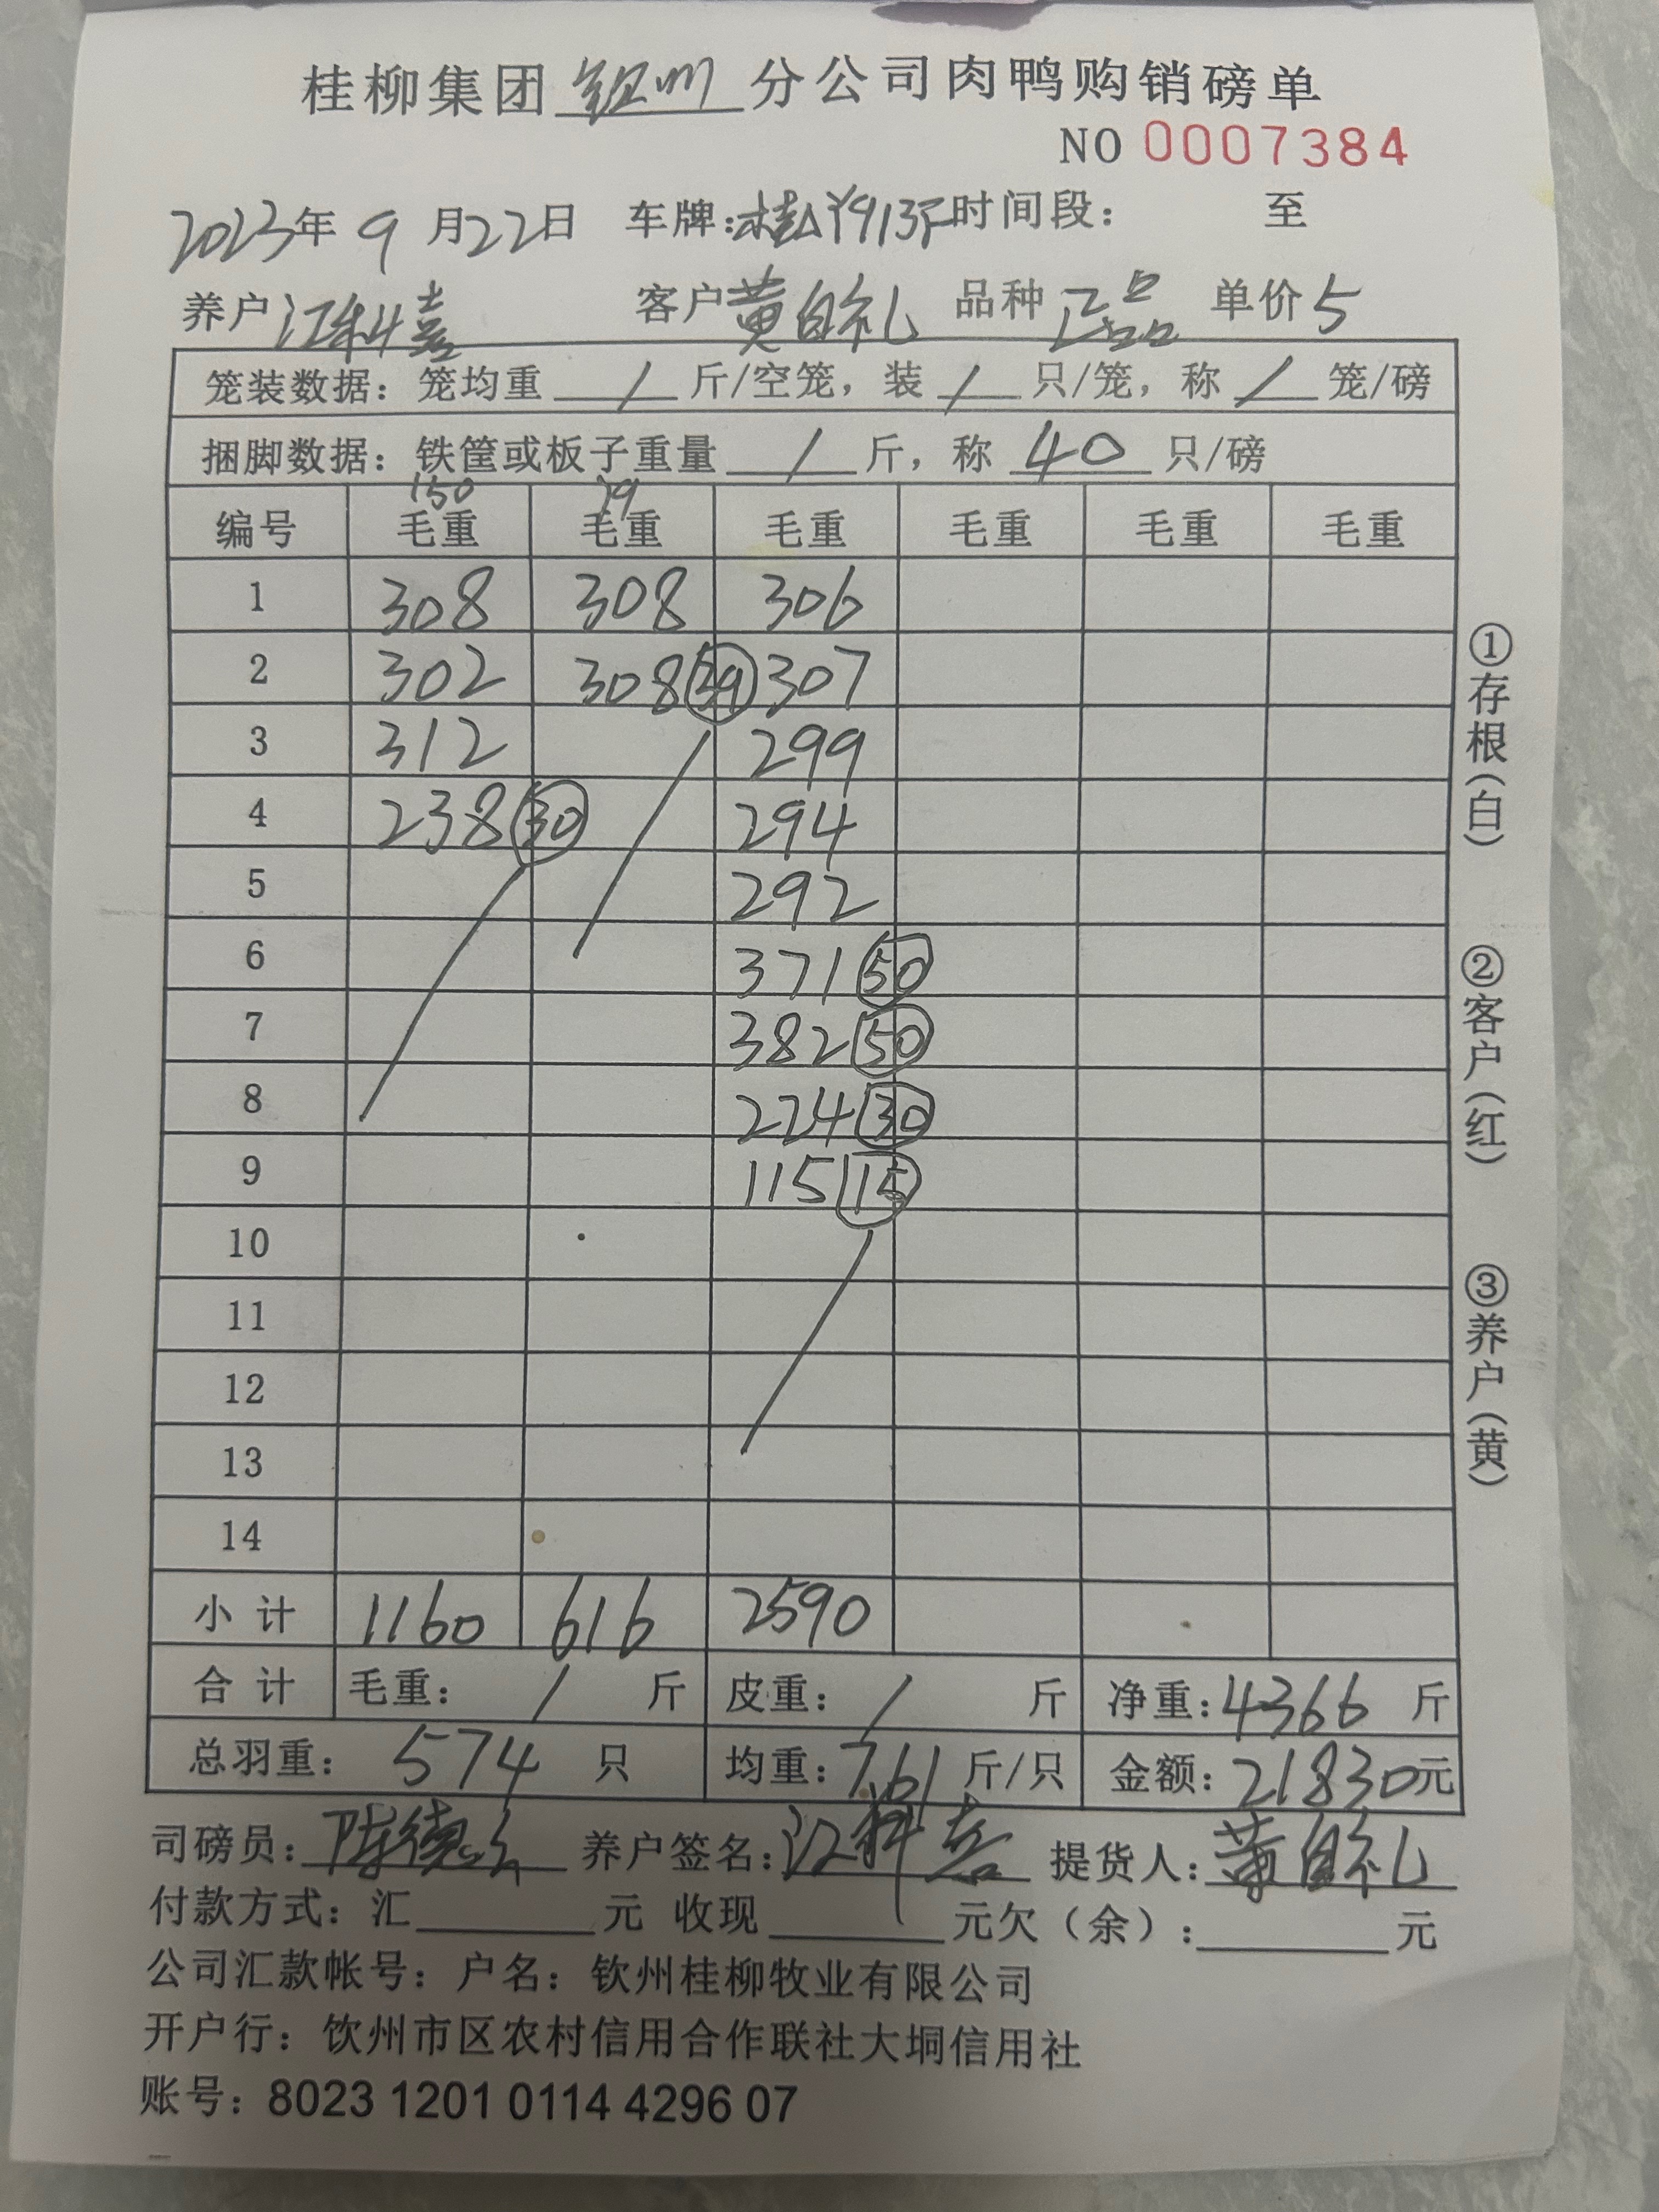 桂柳集团 钦州 分公司肉鸭购销磅单
NO 0007384
2023年 9 月22日 车牌: 时间段: 至
养户 江科嘉 客户 黄自礼 品种 正品 单价 5
笼装数据: 笼均重 / 斤/空笼, 装 / 只/笼, 称 / 笼/磅
捆脚数据: 铁筐或板子重量 / 斤, 称 40 只/磅
150 79
编号 毛重 毛重 毛重 毛重 毛重 毛重
1 308 308 306
2 302 308 39 307
3 312 299
4 238 30 294
5 292
6 371 50
7 382 50
8 224 30
9 115 15
10
11
12
13
14
小计 1160 616 2590
合计 毛重: / 斤 皮重: / 斤 净重: 4366 斤
总羽重: 574 只 均重: 7.61 斤/只 金额: 21830元
司磅员: 陈德 养户签名: 江科嘉 提货人: 黄自礼
付款方式: 汇 元 收现 元欠(余): 元
公司汇款帐号: 户名: 钦州桂柳牧业有限公司
开户行: 饮州市区农村信用合作联社大垌信用社
账号: 8023 1201 0114 4296 07
①存根(白)
②客户(红)
③养户(黄)